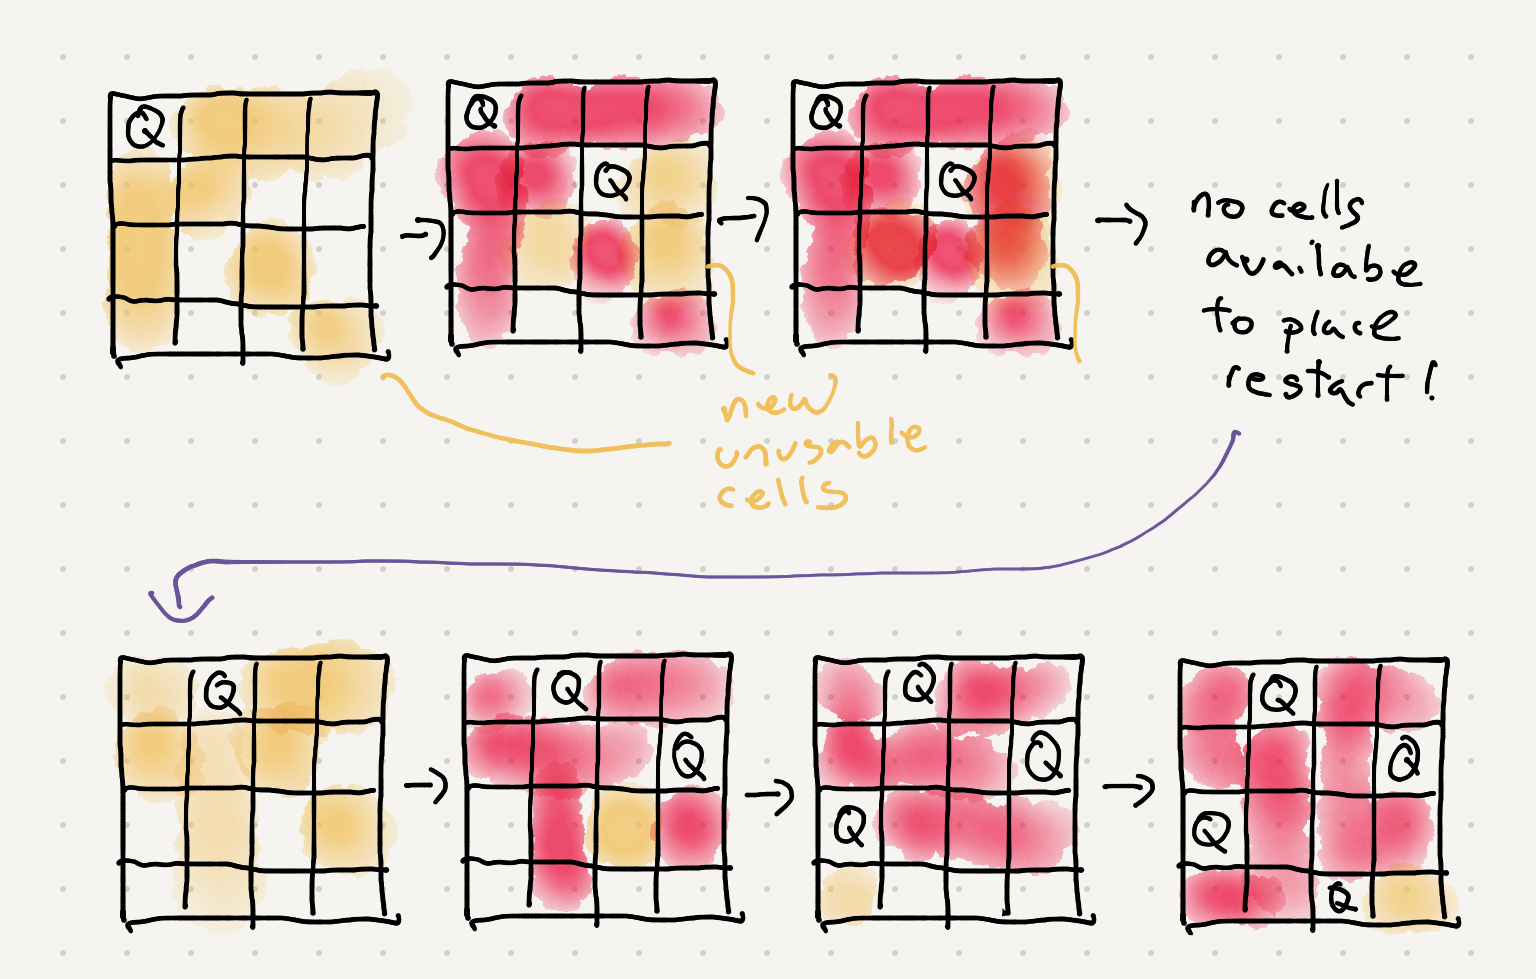 Q
Q
Q
Q
Q
no cells
availabe
to place
restart!
new
unusable
cells
Q
Q
Q
Q
Q
Q
Q
Q
Q
Q